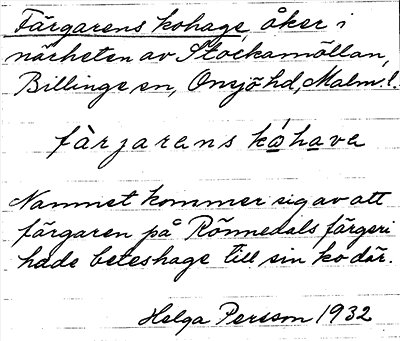 Färgarens kohage, åker i
närheten av Stockamöllan,
Billinge sn, Onsjö hd, Malm. l.
fàrjarens kóhava
Namnet kommer sig av att
färgaren på Rönnedals färgeri
hade beteshage till sin ko där.
Helga Persson 1932